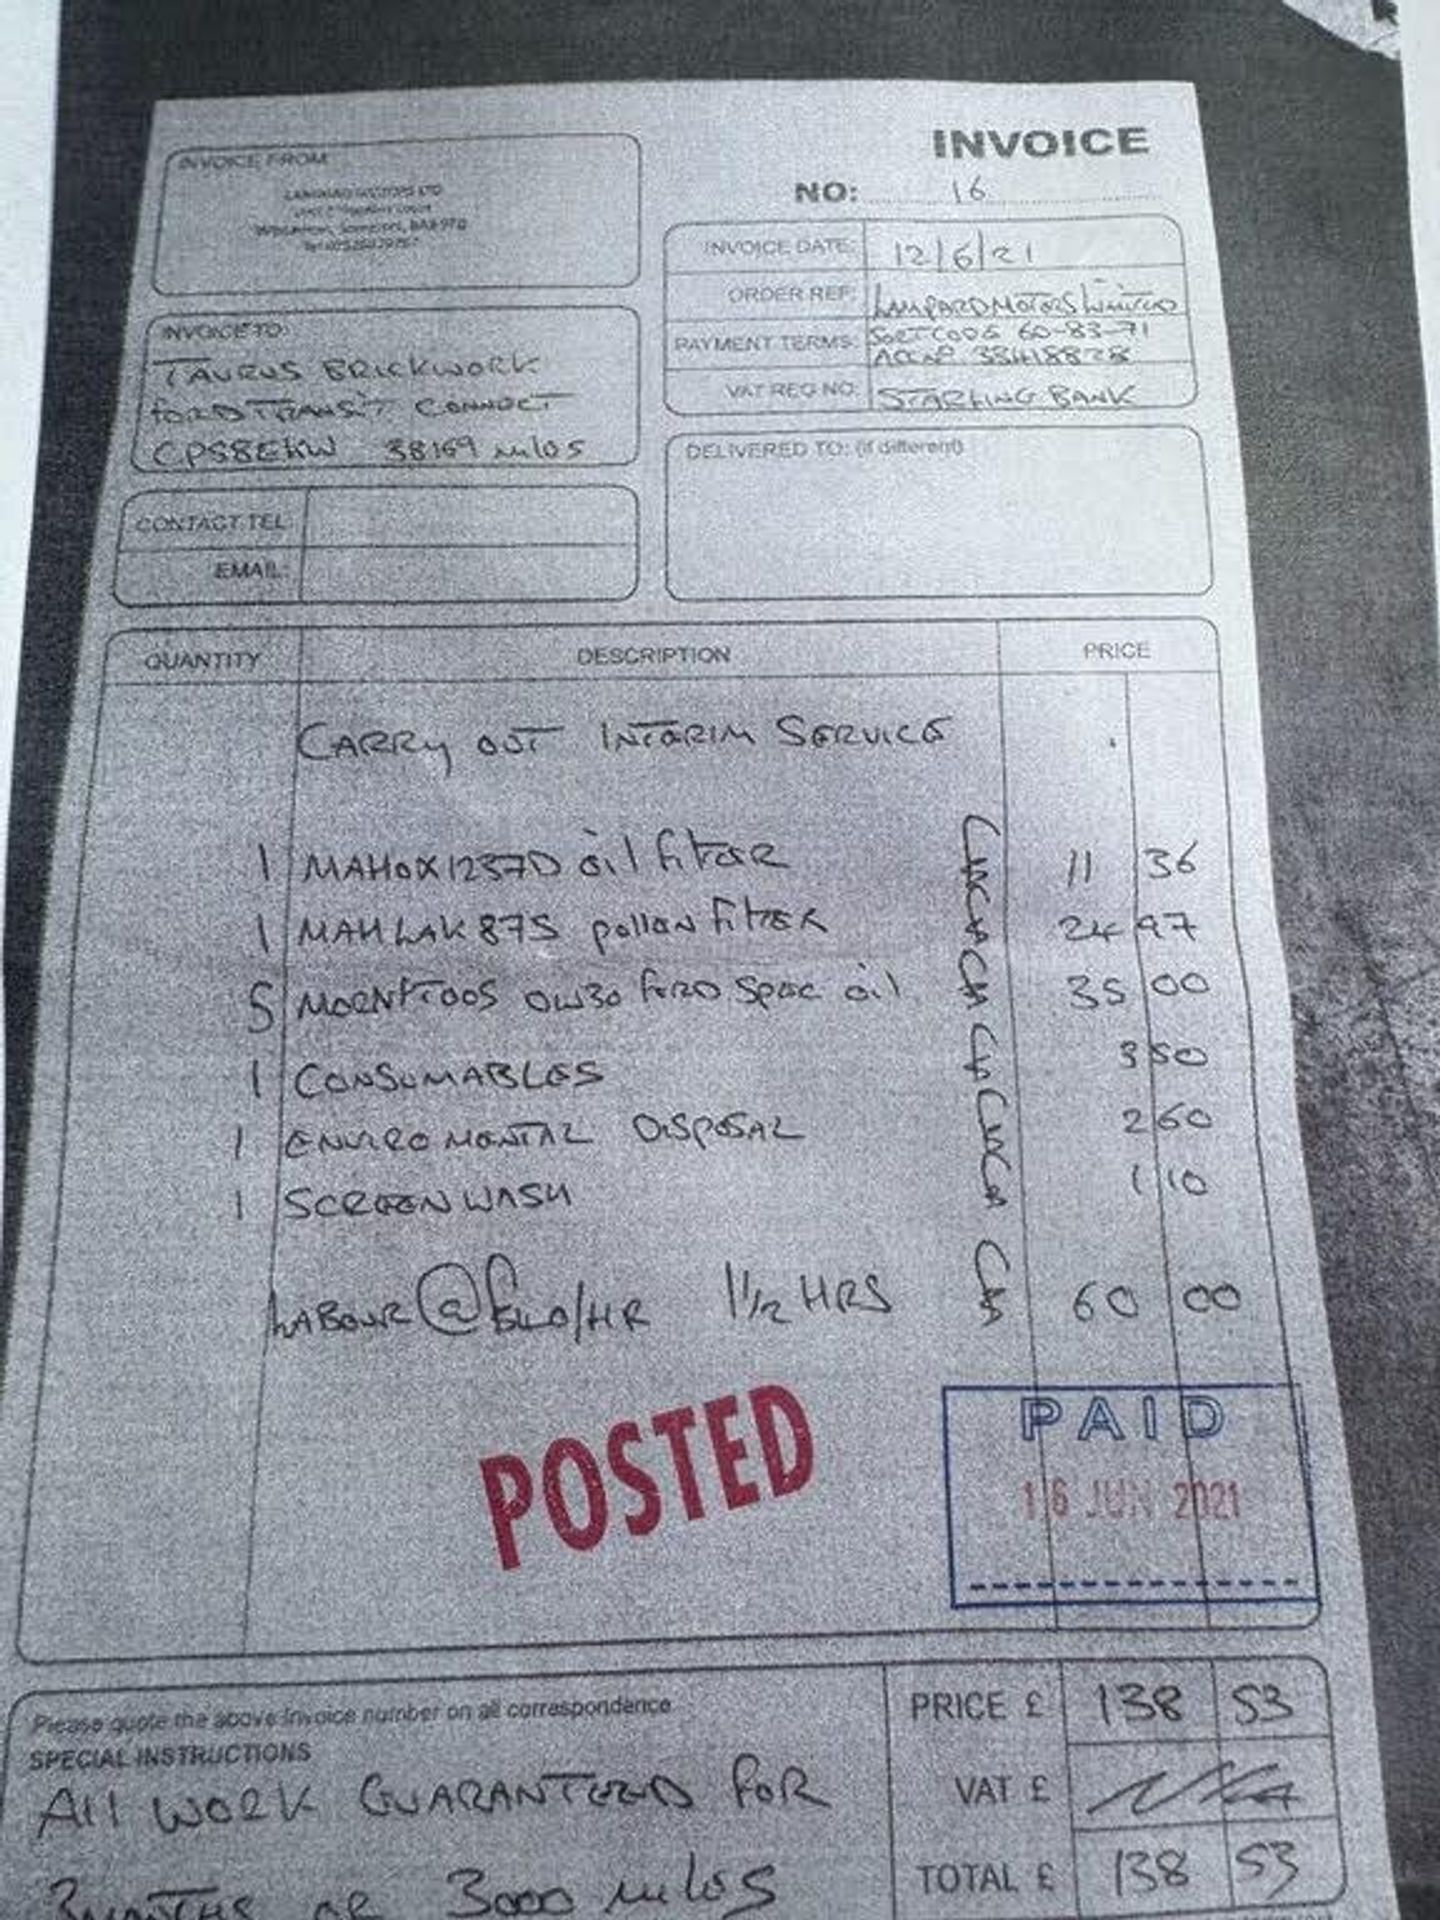 INVOICE
NO: 16
INVOICE FROM
INVOICE DATE: 12/6/21
ORDER REF: LAMPARD MOTORS LIMITED
PAYMENT TERMS: SORT CODE 60-83-71
VAT REG NO: STARLING BANK
INVOICE TO:
TAURUS BRICKWORK
FORD TRANSIT CONNECT
CP58EKW 38169 miles
DELIVERED TO: (if different)
CONTACT TEL:
EMAIL:
QUANTITY DESCRIPTION PRICE
CARRY OUT INTERIM SERVICE
1 MAHOX1237D oil filter 11 36
1 MAHLAK875 pollen filter 24 97
5 0W30 ford spec oil 35 00
1 CONSUMABLES 3 50
1 ENVIROMENTAL DISPOSAL 2 60
1 SCREENWASH 1 10
LABOUR @ £40/HR 1 1/2 HRS 60 00
POSTED
PAID
16 JUN 2021
Please quote the above invoice number on all correspondence
SPECIAL INSTRUCTIONS
All WORK GUARANTEED FOR
3 MONTHS OR 3000 miles
PRICE £ 138 53
VAT £ N/A
TOTAL £ 138 53